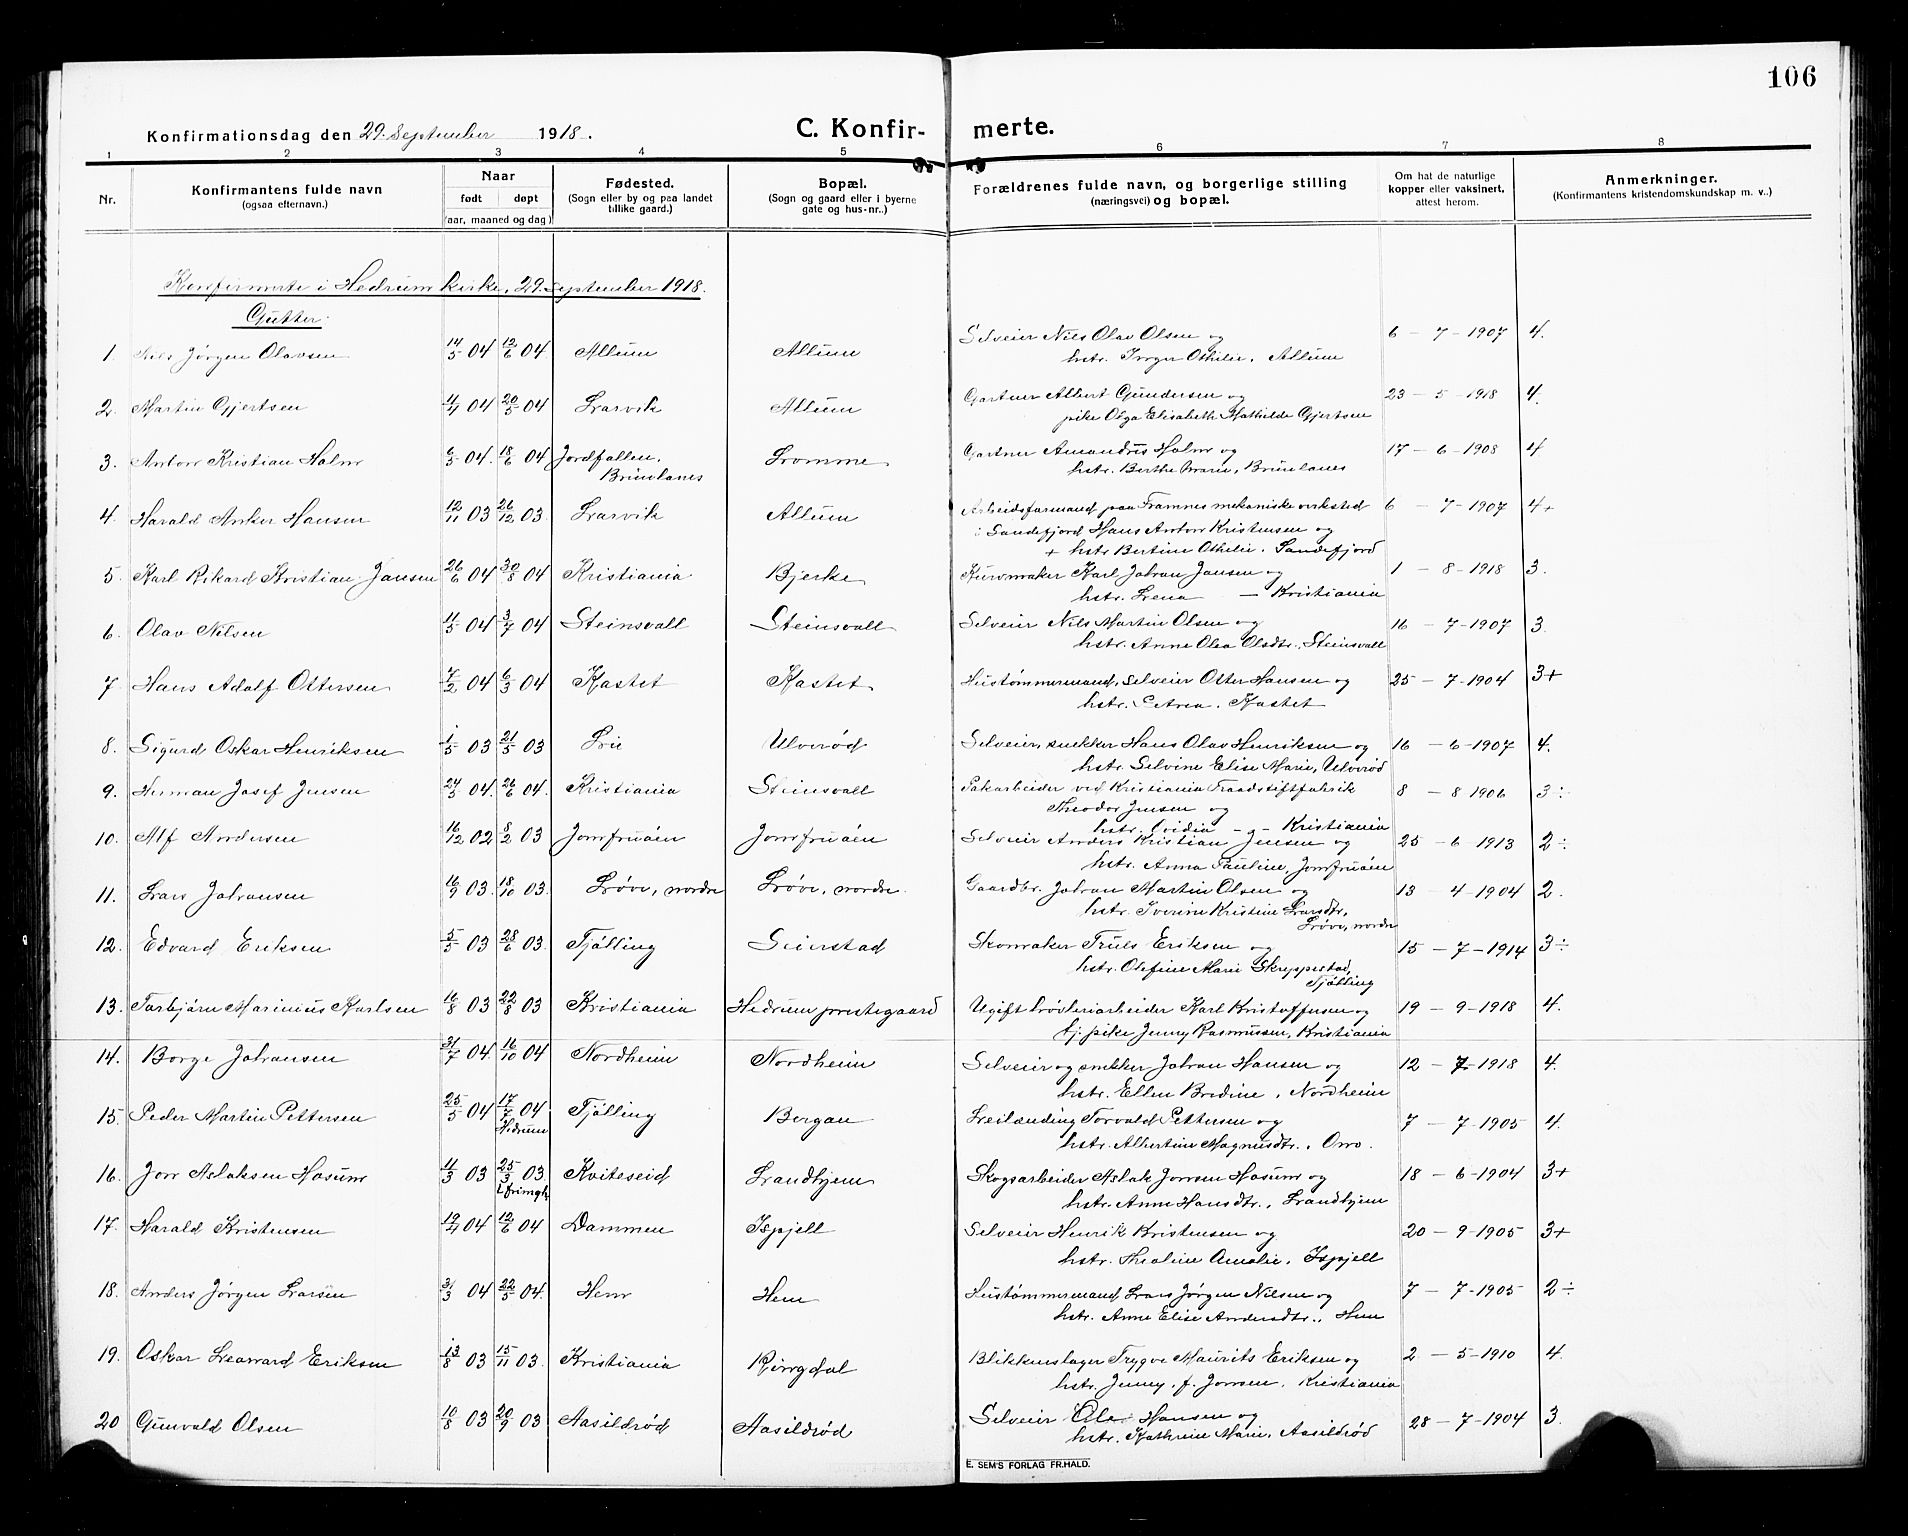 106
Konfirmationsdag den 29. September 1918.
C. Konfir- merte.
1 2 3 4 5 6 7 8
Nr.
Konfirmantens fulde navn
(ogsaa efternavn.)
Naar
født døpt
(aar, maaned og dag)
Fødested.
(Sogn eller by og paa landet
tillike gaard.)
Bopæl.
(Sogn og gaard eller i byerne
gate og hus-nr..)
Forældrenes fulde navn, og borgerlige stilling
(næringsvei) og bopæl.
Om hat de naturlige
kopper eller vaksinert,
attest herom.
Anmerkninger.
(Konfirmantens kristendomskundskap m. v..)
Konfirmerte i Hedrum kirke, 29. september 1918.
Gutter.
1. Nils Jørgen Olavsen 14/5 04 12/6 04 Allum Allum Selveier Nils Olav Olsen og 6 - 7 - 1907 4.
hstr. Inger Othilie, Allum
2. Martin Gjertsen 11/4 04 20/5 04 Larvik Allum Gartner Albert Gundersen og 23 - 5 - 1918 4.
pike Olga Elisabeth Mathilde Gjertsen
3. Anton Kristian Holm 6/5 04. 18/6 04 Jordfallen, Lromme Gartner Amandus Holm og 17 - 6 - 1908 4
Brunlanes hstr. Berthe Marie, Brunlanes
4. Harald Anker Hansen 12/11 03 26/12 03. Larvik Allum Arbeidsformand paa Framnes mekaniske verksted 6 - 7 - 1907 4+
i Sandefjord Hans Anton Kristensen og
+ hstr Bertine Othilie. Sandefjord
5. Karl Rikard Kristian Jansen 26/6 04 30/8 04 Kristiania Bjerke Kurvmaker Karl Johan Jansen og 1 - 8 - 1918 3.
hstr. Lena — Kristiania
6. Olav Nilsen 11/5 04 3/7 04 Steinsvall Steinsvall Selveier Nils Martin Olsen og 16 - 7 - 1907 3.
hstr. Anne Olea Olsdtr., Steinsvall
7 Hans Adolf Ottersen 7/2 04 6/3 04 Kastet Kastet Hustømmermand, selveier Otter Hansen og 25 - 7 - 1904 3+
hstr. Petrea. Kastet
8. Sigurd Oskar Henriksen 1/5 03 21/5 03 Lie Ulverød Selveier, snekker Hans Olav Henriksen og 16 - 6 - 1907 4.
hstr. Selvine Elise Marie, Ulverød
9. Herman Josef Jensen 24/5 04. 26/6 04. Kristiania Steinsvall Pakarbeider ved Kristiania Traadstiftfabrik 8 - 8 1906 3÷
Theodor Jensen og
hstr. Ovidia - „ - Kristiania
10. Alf Andersen 16/12 02 8/2 03 Jomfruøien Jomfruøien Selveier Anders Kristian Jensen og 25 - 6 - 1913 2÷
hstr. Anna Pauline, Jomfruøien
11. Lars Johansen 16/9 03. 18/10 03. Løve, nordre Løve, nordre. Gaardbr. Johan Martin Olsen og 13 - 4 - 1904 2.
hstr. Iverine Kristine Larsdtr,
Løve, nordre
12. Edvard Eriksen 5/5 03 28/6 03. Tjølling Seierstad Skomaker Truls Eriksen og 15 - 7 - 1914 3÷
hstr. Olefine Marie Skreppestad,
Tjølling
13. Torbjørn Marinius Karlsen 16/8 03 22/8 03 Kristiania Hedrum prestegaard Ugift brøleriarbeider Karl Kristoffersen og 19 - 9 - 1918 4.
tj. pike Jenny Rasmussen, Kristiania
14. Borge Johansen 31/7 04. 16/10 04 Nordheim Nordheim Selveier og snekker Johan Hansen og 12 - 7 - 1918 4.
hstr. Ellen Bredine, Nordheim
15. Peder Martin Pettersen 25/5 04 17/7 04 Tjølling Bergan Leilænding Torvald Pettersen og 7 - 7 - 1905 4.
Hedrum hstr. Albertine Magnusdtr., Omo.
16. Jon Aslaksen Hosum 11/3 03 25/3 03. Kviteseid Landhjem Skogsarbeider Aslak Jonsen Hosum og 18 - 6 - 1904 3+
hstr. Anne Hansdtr., Landhjem
17. Harald Kristensen 19/4 04 12/6 04 Dammen Ispjell Selveier Henrik Kristensen og 20 - 9 - 1905 3+
hstr. Theoline Amalie, Ispjell
18. Anders Jørgen Larsen 31/3 04 22/5 04. Hem Hem Hustømmermand Lars Jørgen Nilsen og 7 - 7 - 1905 2÷
hstr. Anne Elise Andersdtr., Hem
19. Oskar Leonard Eriksen 13/8 03 15/11 03. Kristiania Ringdal Blikkenslager Trygve Maurits Eriksen og 2 - 5 - 1910 4.
hstr. Jenny, f. Jonson, Kristiania
20 Gunvald Olsen 10/8 03 20/9 03 Aasildrød Aasildrød Selveier Ole Hansen og 28 - 7 - 1904 3.
hstr. Kathrine Marie, Aasildrød
E. SEM'S FORLAG FR.HALD.